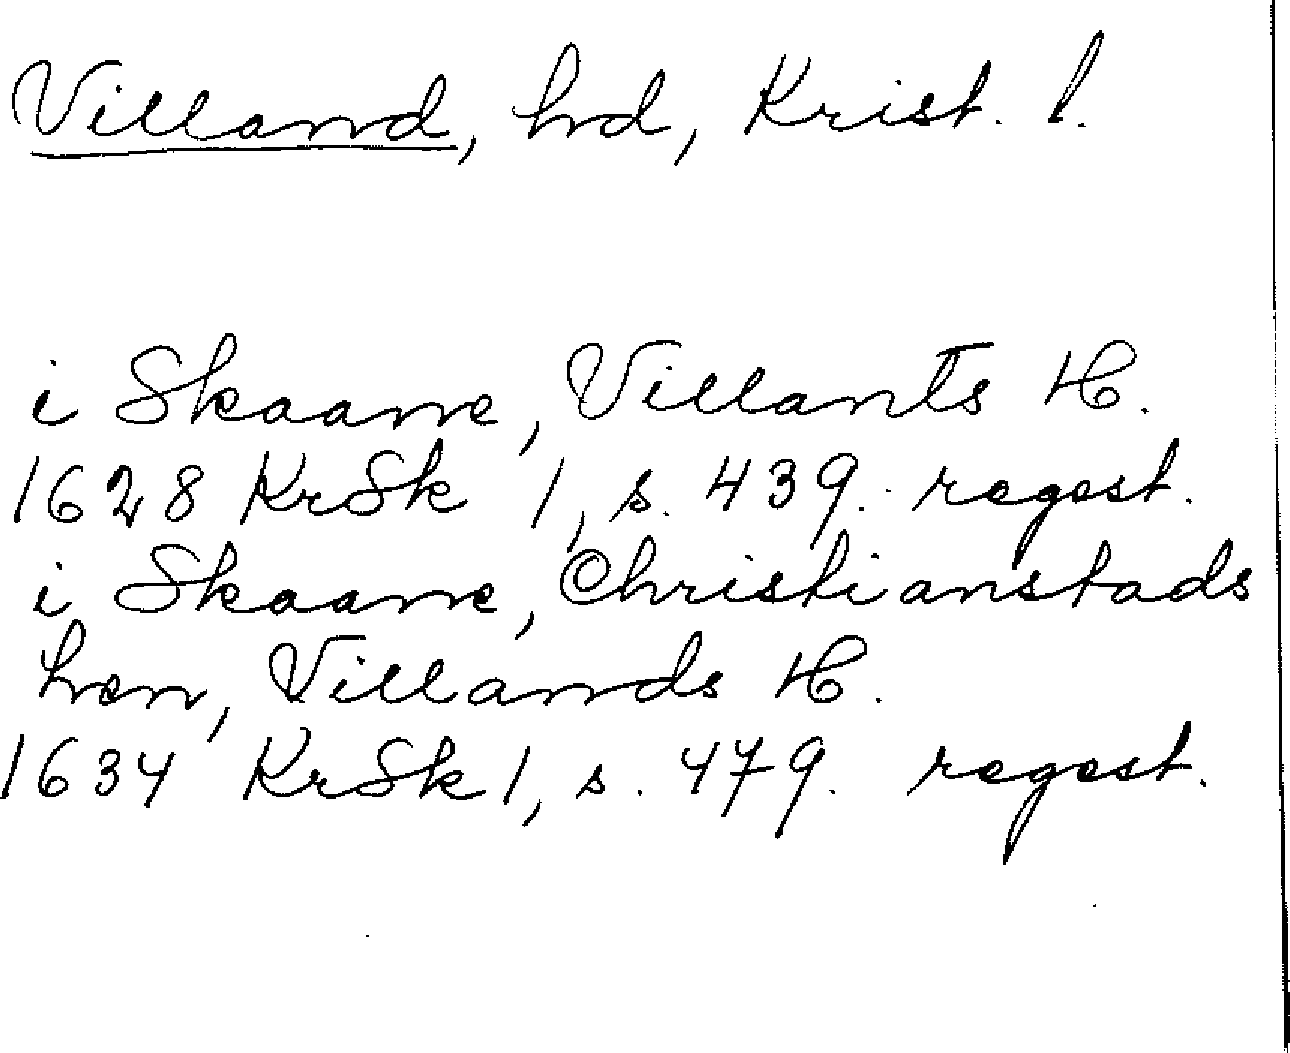 Villand, hd, Krist. l.
i Skaane, Villants H.
1628 KrSk 1, s. 439. regest.
i Skaane, Christianstads
Len, Villands H.
1634 KrSk 1, s. 479. regest.